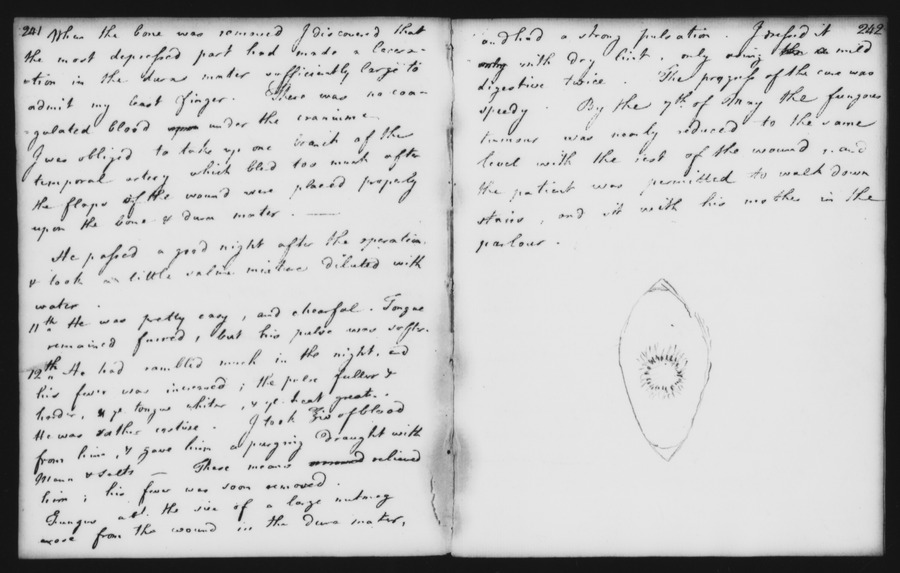 241
When the bone was removed I discovered that
the most depressed part had made a lacera-
ation in the dura mater sufficiently large to
admit my least finger. There was no coa-
gulated blood under the cranium.
I was obliged to take up one branch of the
temporal artery which bled too much after
the flaps of the wound were placed properly
upon the bone & dura mater.
He passed a good night after the operation
& took a little saline mixture diluted with
water.
11th He was pretty easy, and chearful. Tongue
remained furred, but his pulse was softer.
12th He had rambled much in the night, and
his fever was increased; the pulse fuller &
harder, & ye tongue whiter, & ye heat great.
He was rather costive. I took of blood
from him, & gave him a purging Draught with
Manna & salts. These means relieved
him; his fever was soon removed.
Fungus abt. the size of a large nutmeg
arose from the wound in the dura mater,
242
and had a strong pulsation. I dressed it
only with dry lint, only using a mild
digestive twice. The progress of the cure was
speedy. By the 7th of May the fungous
tumour was nearly reduced to the same
level with the rest of the wound, and
the patient was permitted to walk down
stairs, and sit with his mother in the
parlour.